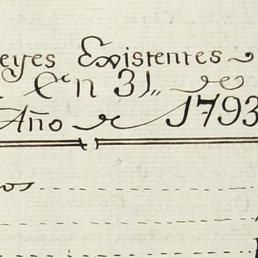 eyes Existentes
En 31,, de
Año de 1793
os